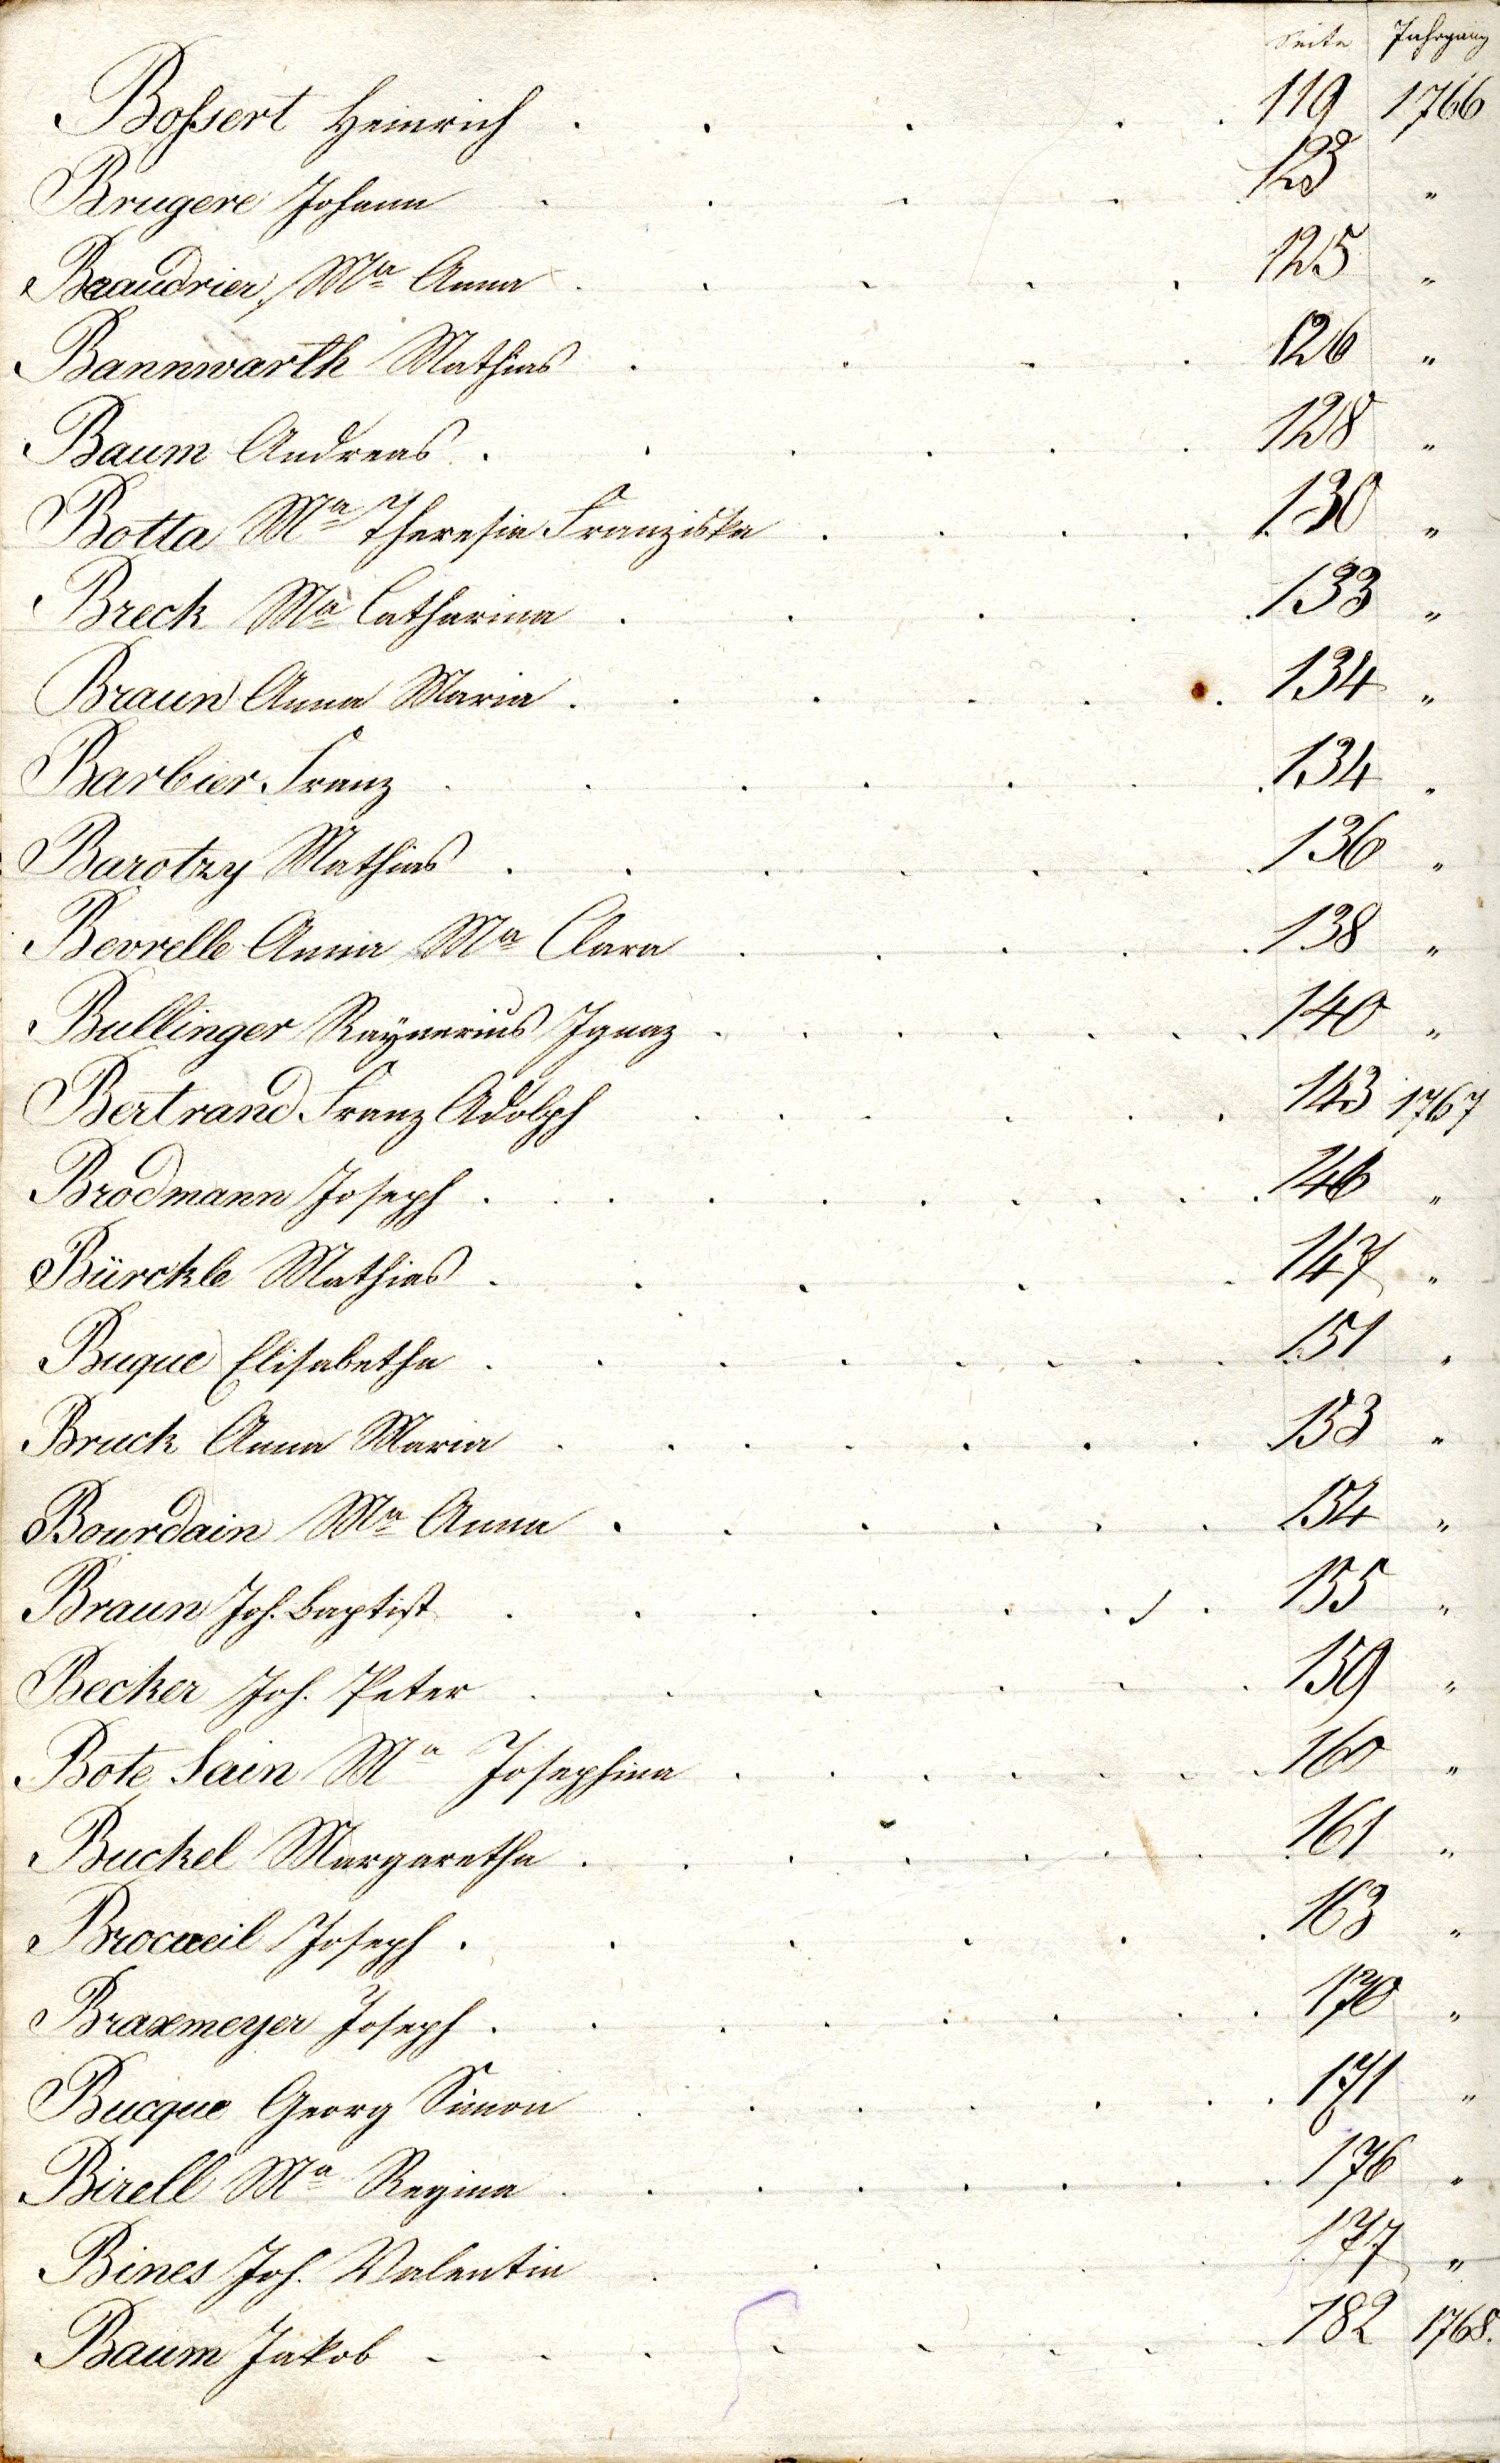 Seite Jahrgang
Boßert Heinrich . . . . . 119 1766
Brugere Johann . . . . . 123 "
Beaudrier, Ma Anna . . . . . 125 "
Bannwarth Mathias . . . . 126 "
Baum Andreas . . . . . . 128 "
Botta Ma Theresia Franziska . . . . 130 "
Breck Ma Catharina . . . . . 133 "
Braun Anna Maria . . . . . . 134 "
Barbier Franz . . . . . . . 134 "
Barotzy Mathias . . . . . . . 136 "
Bevrelle Anna Ma Clara . . . . . 138 "
Bullinger Raynerius Ignaz . . . . . . . 140 "
Bertrand Franz Adolph . . . . . . 143 1767
Brodmann Joseph . . . . . . . . . . 146 "
Bürckle Mathias . . . . . 147 "
Buque Elisabetha . . . . . . . . . 151 "
Bruck Anna Maria . . . . . . . 153 "
Bourdain Ma Anna . . . . . . 154 "
Braun Joh. Baptist . . . . . . . 155 "
Becker Joh. Peter . . . . . . 159 "
Bote Sain Ma Josephina . . . . . . 160 "
Buckel Margaretha . . . . . . . 161 "
Brocweil Joseph . . . . . . 163 "
Braxmeyer Joseph . . . . . . . . 170 "
Bucque Georg Simon . . . . . . . 171 "
Birell Ma Regina . . . . . . . . 176 "
Bines Joh. Valentin . . . . 177 "
Baum Jakob . . . . . . . . 182 1768.